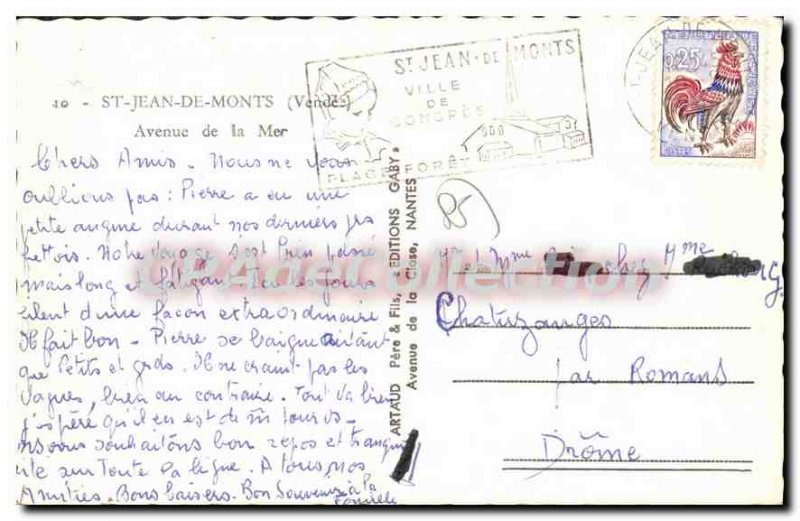 10 - ST-JEAN-DE-MONTS (Vendée)
Avenue de la Mer
ST JEAN-DE-MONTS
VILLE
DE
CONGRÈS
PLAGE FORÊT
0,25
Chers Amis. Nous ne vous
oublions pas : Pierre a eu une
petite angine durant nos derniers jrs
Notre voyage s'est bien passé
mais long et fatigant. Tous les jours
d'une façon extraordinaire
Il fait bon - Pierre se baigne autant
que Petits et grds. Il ne craint pas les
Vagues, bien au contraire. Tout va bien
j'espère qu'il en est de m̂ pour vs -
ns vous souhaitons bon repos et tranqui
lité sur Toute la ligne. A Tous, nos
Amitiés - Bons baisers. Bon Souvenir à la
famille
ARTAUD Père & Fils, « EDITIONS GABY »
Avenue de la Close, NANTES
CPAdeCollection
Mr et Mme chez Mme
Chatuzanges
par Romans
Drôme